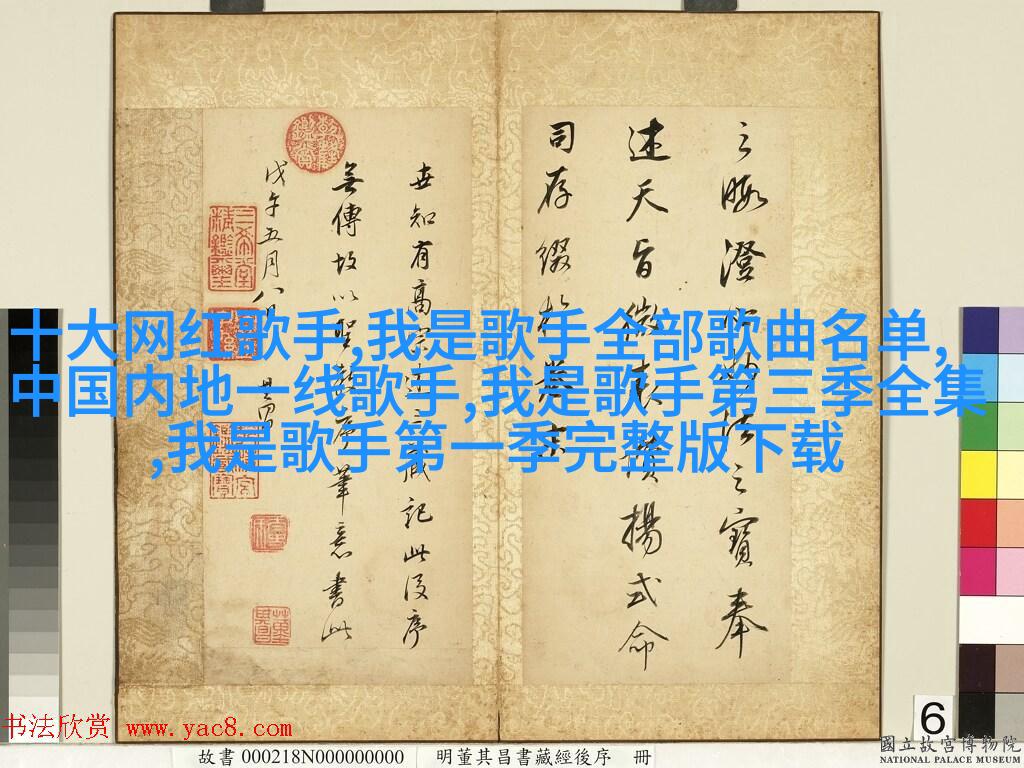 之暇澄
述天旨微表贊揚式命
司存綴於卷末
世知有高宗
無傳故以聖教序筆意書此
戊午五月八日
十大网红歌手,我是歌手全部歌曲名单,
中国内地一线歌手,我是歌手第三季全集
,我是歌手第一季完整版下载
之寶奉
藏記此後序
其昌
6
书法欣赏 www.yac8.com
故書 000218N000000000
明董其昌書藏經後序 冊
國立故宮博物院
NATIONAL PALACE MUSEUM